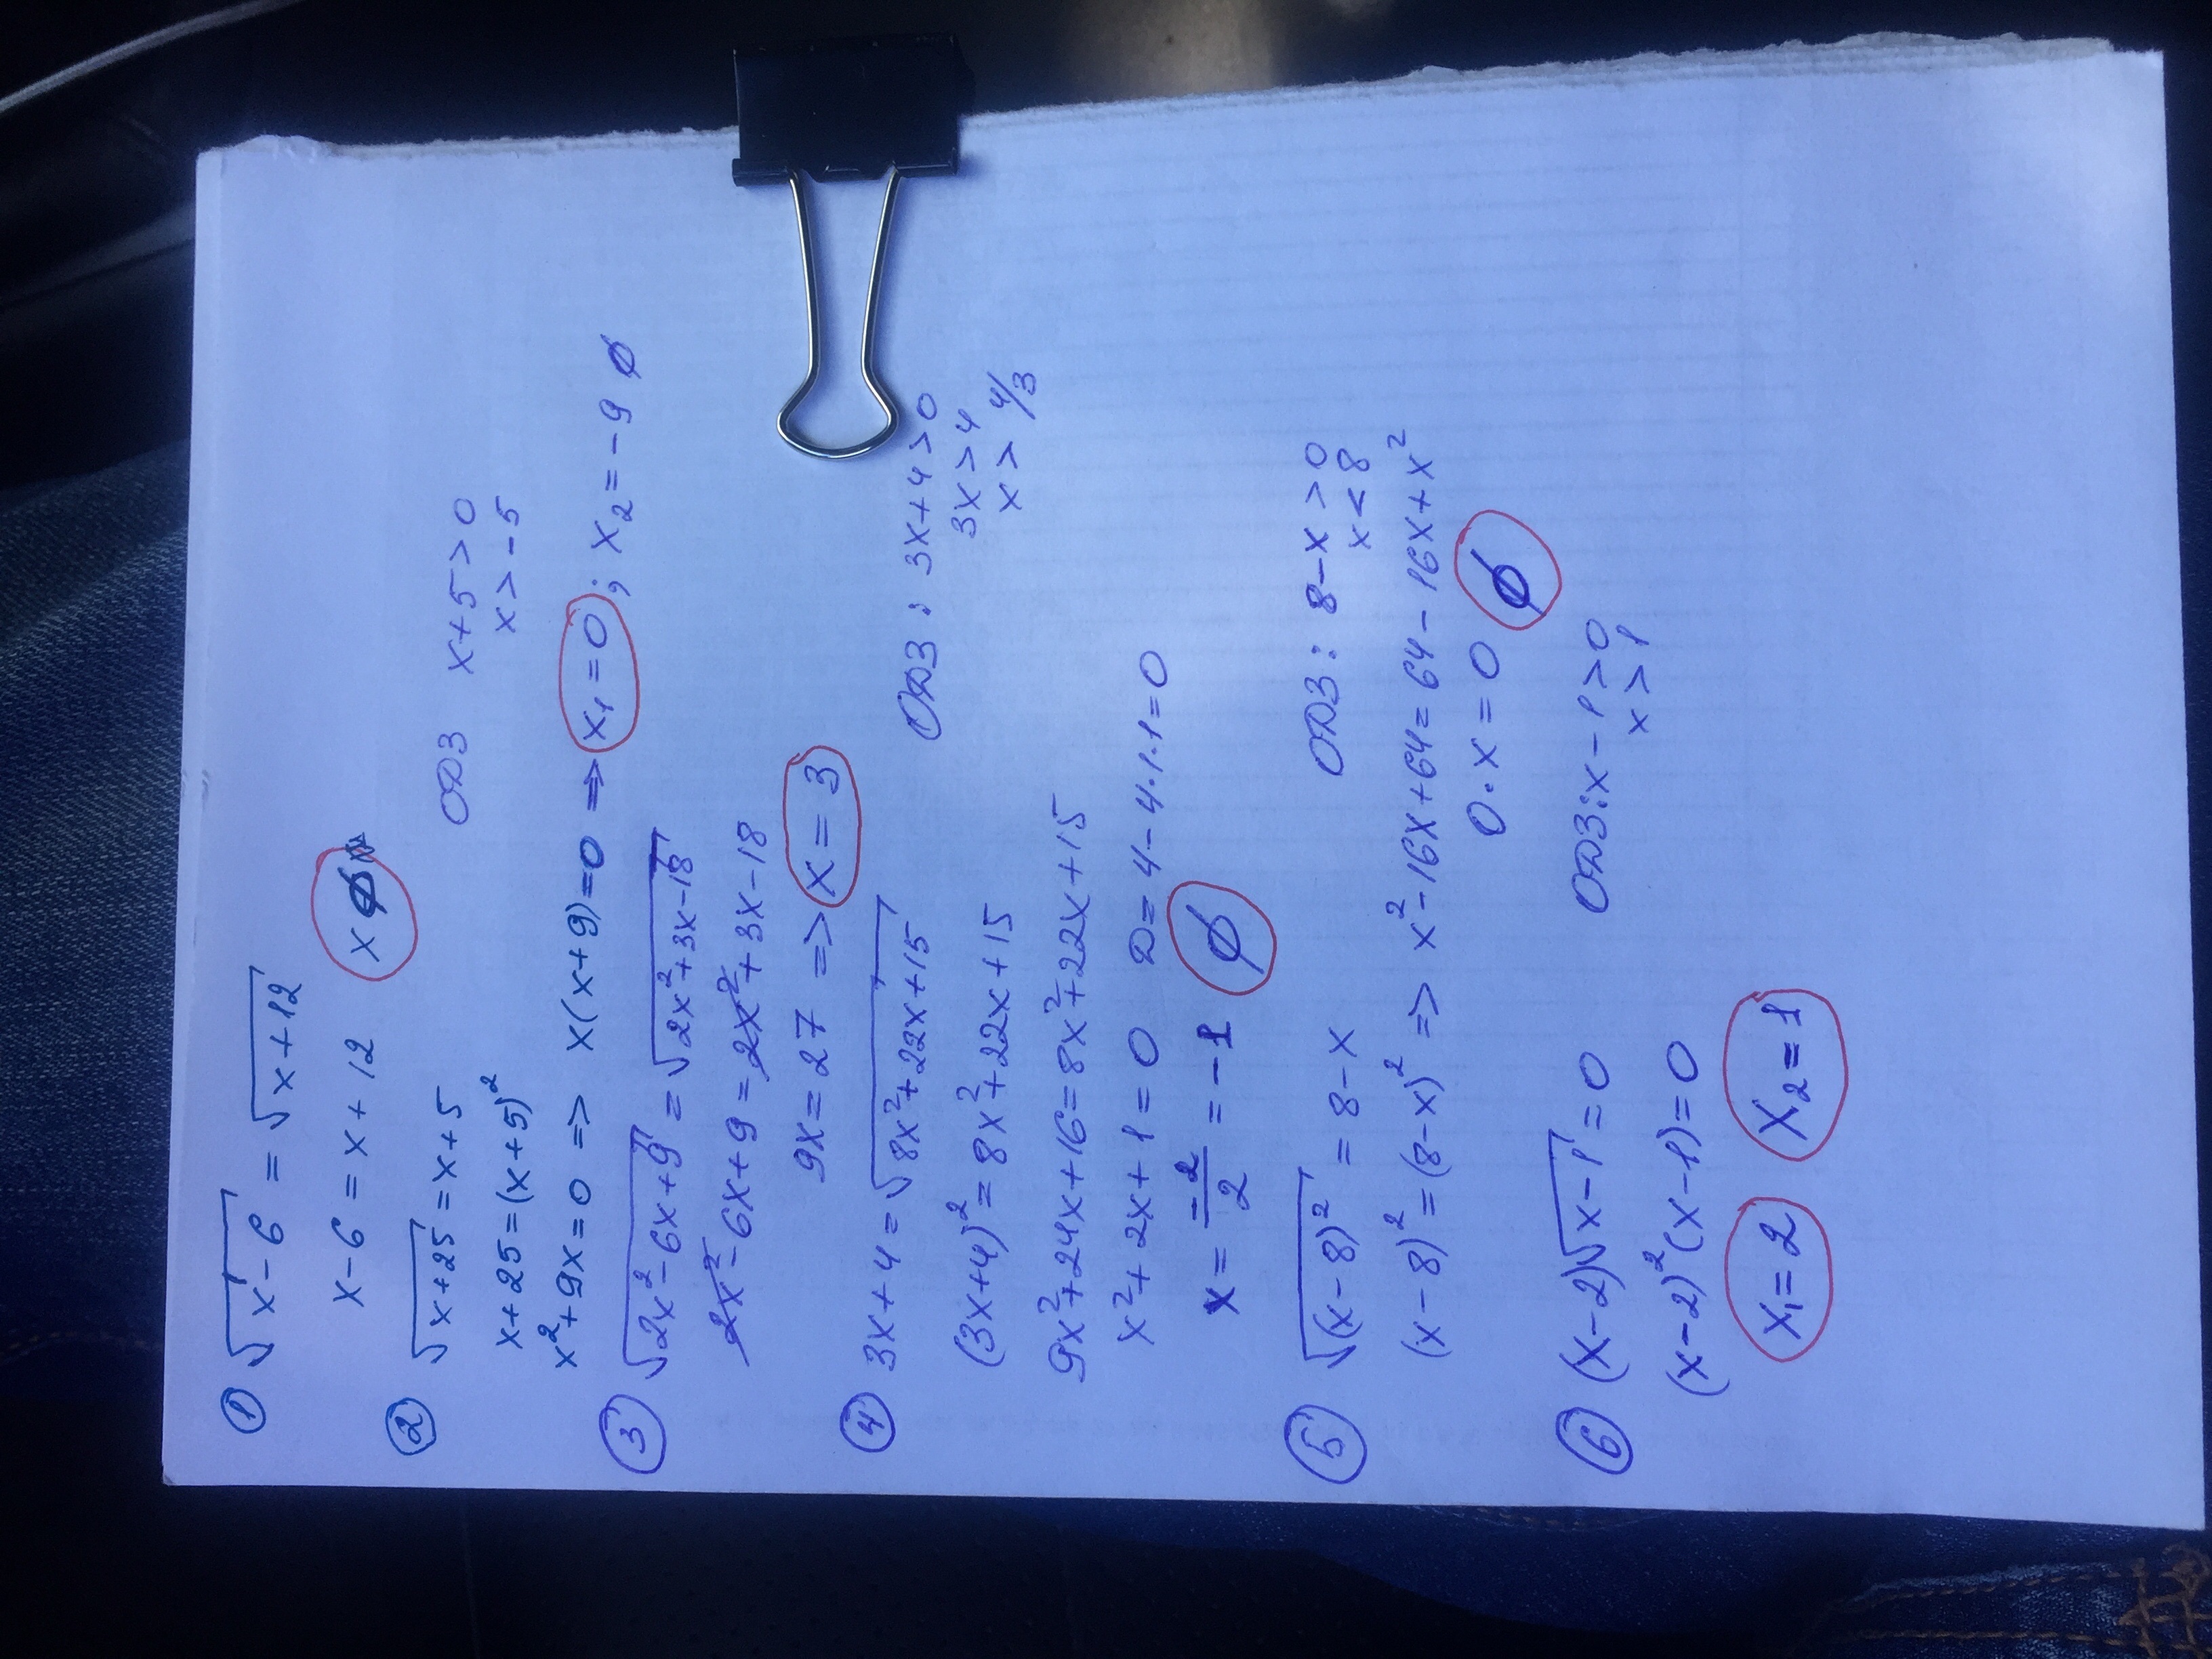 ① √x-6 = √x+12
x-6 = x+12 x ∅
② √x+25 = x+5 ОДЗ x+5>0
x+25=(x+5)² x>-5
x²+9x=0 => x(x+9)=0 => x₁=0; x₂=-9 ∅
③ √2x²-6x+9 = √2x²+3x-18
2x²-6x+9=2x²+3x-18
9x=27 => x=3
④ 3x+4=√8x²+22x+15 ОДЗ: 3x+4>0
(3x+4)²=8x²+22x+15 3x>4
x>4/3
9x²+24x+16=8x²+22x+15
x²+2x+1=0 D=4-4·1·1=0
x=-2/2=-1 ∅
⑤ √(x-8)² = 8-x ОДЗ: 8-x>0
x<8
(x-8)²=(8-x)² => x²-16x+64=64-16x+x²
0·x=0 ∅
⑥ (x-2)√x-1=0 ОДЗ: x-1>0
x>1
(x-2)²(x-1)=0
x₁=2 x₂=1